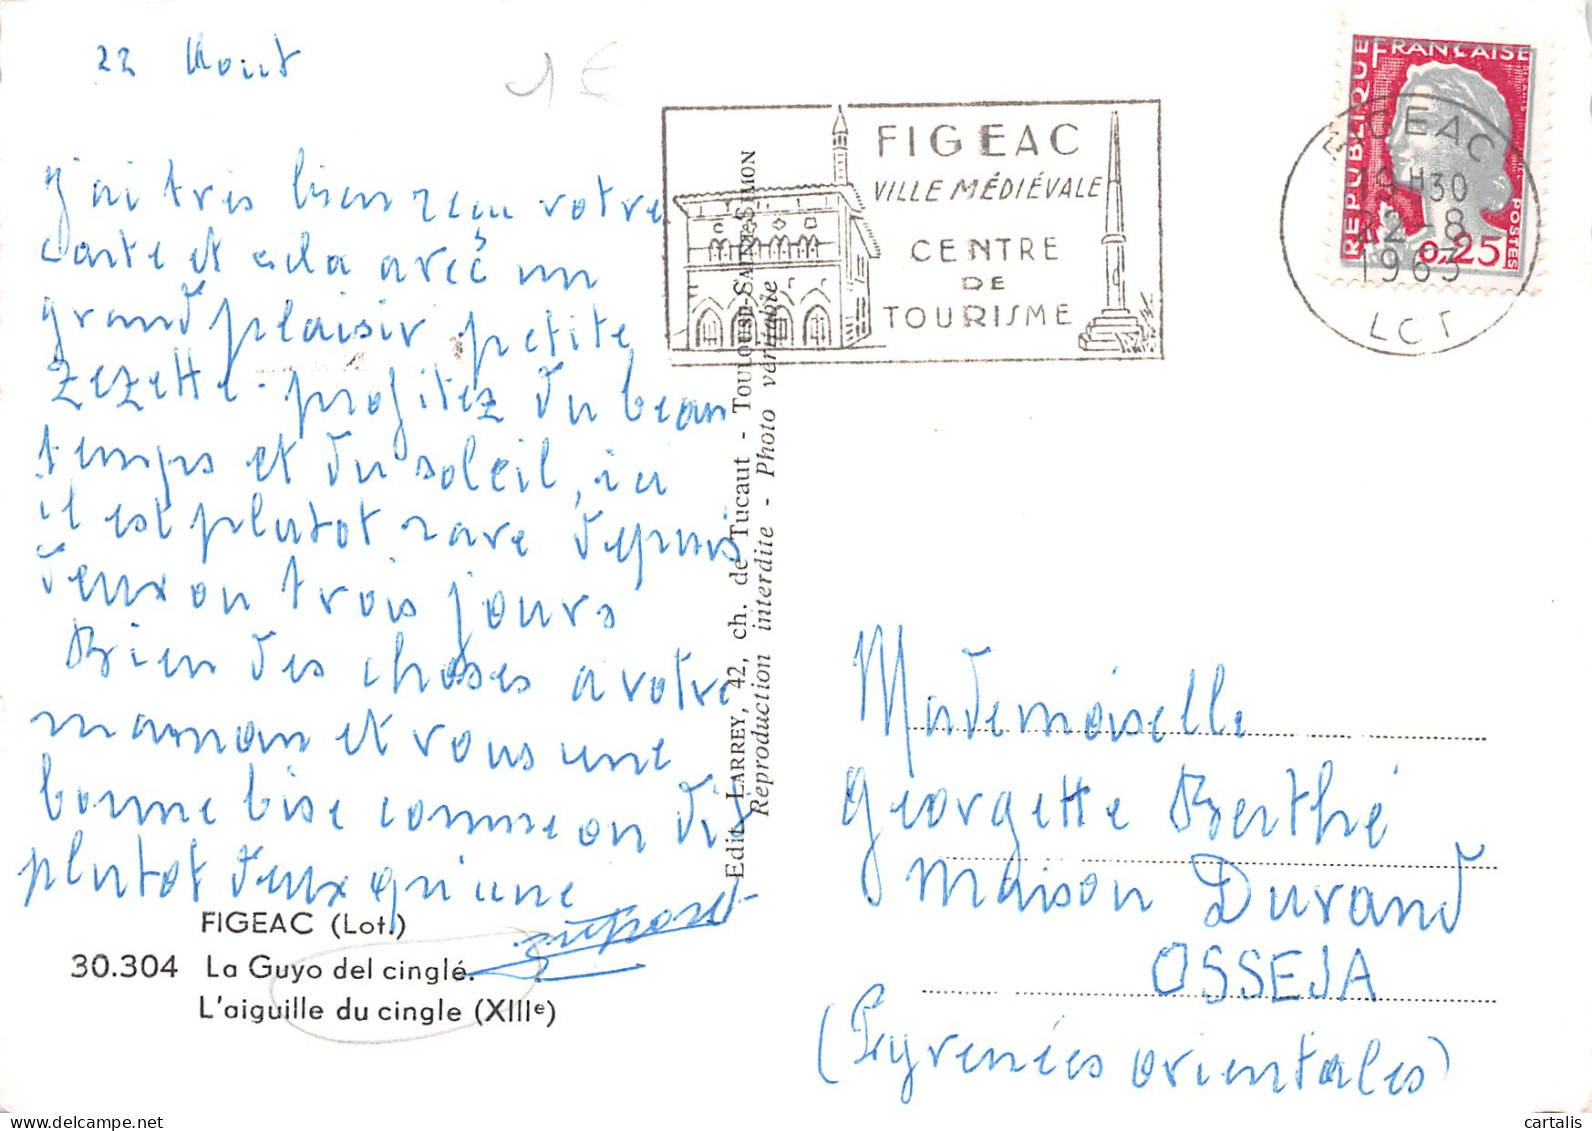 22 Aout
1€
j'ai très bien reçu votre
carte et cela avec un
grand plaisir petite
Zezette. profitez du beau
temps et du soleil, ici
il est plutot rare depuis
deux ou trois jours
Bien des choses a votre
maman et vous une
bonne bise comme on dit
plutot deux qu'une
FIGEAC (Lot.)
30.304 La Guyo del cinglé.
L'aiguille du cingle (XIIIe)
Edit. LARREY, 42, ch. de Tucaut - TOULOUSE-SAINT-SIMON
Reproduction interdite - Photo véritable
FIGEAC
VILLE MÉDIÉVALE
CENTRE
DE
TOURISME
RÉPUBLIQUE FRANÇAISE
0,25
POSTES
FIGEAC
H30
22-8
1963
LOT
Mademoiselle
Georgette Berthé
Maison Durand
OSSEJA
(Pyrenées orientales)